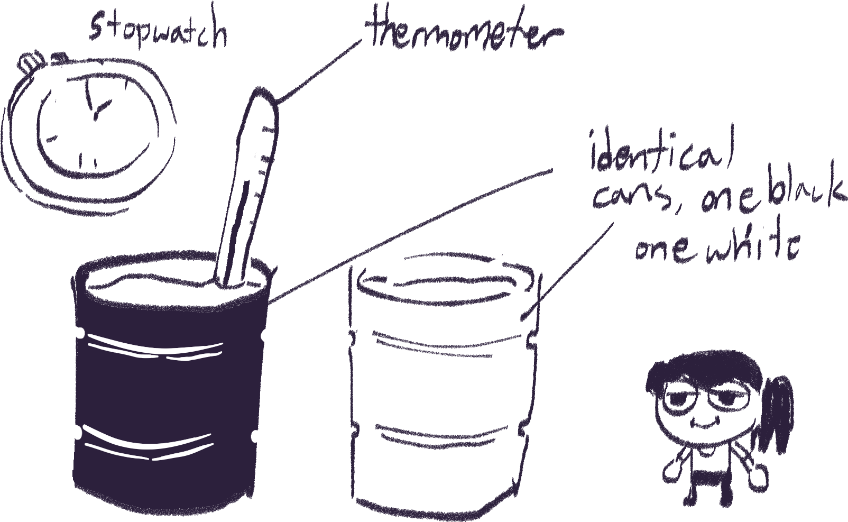 stopwatch
thermometer
identical
cans, one black
one white